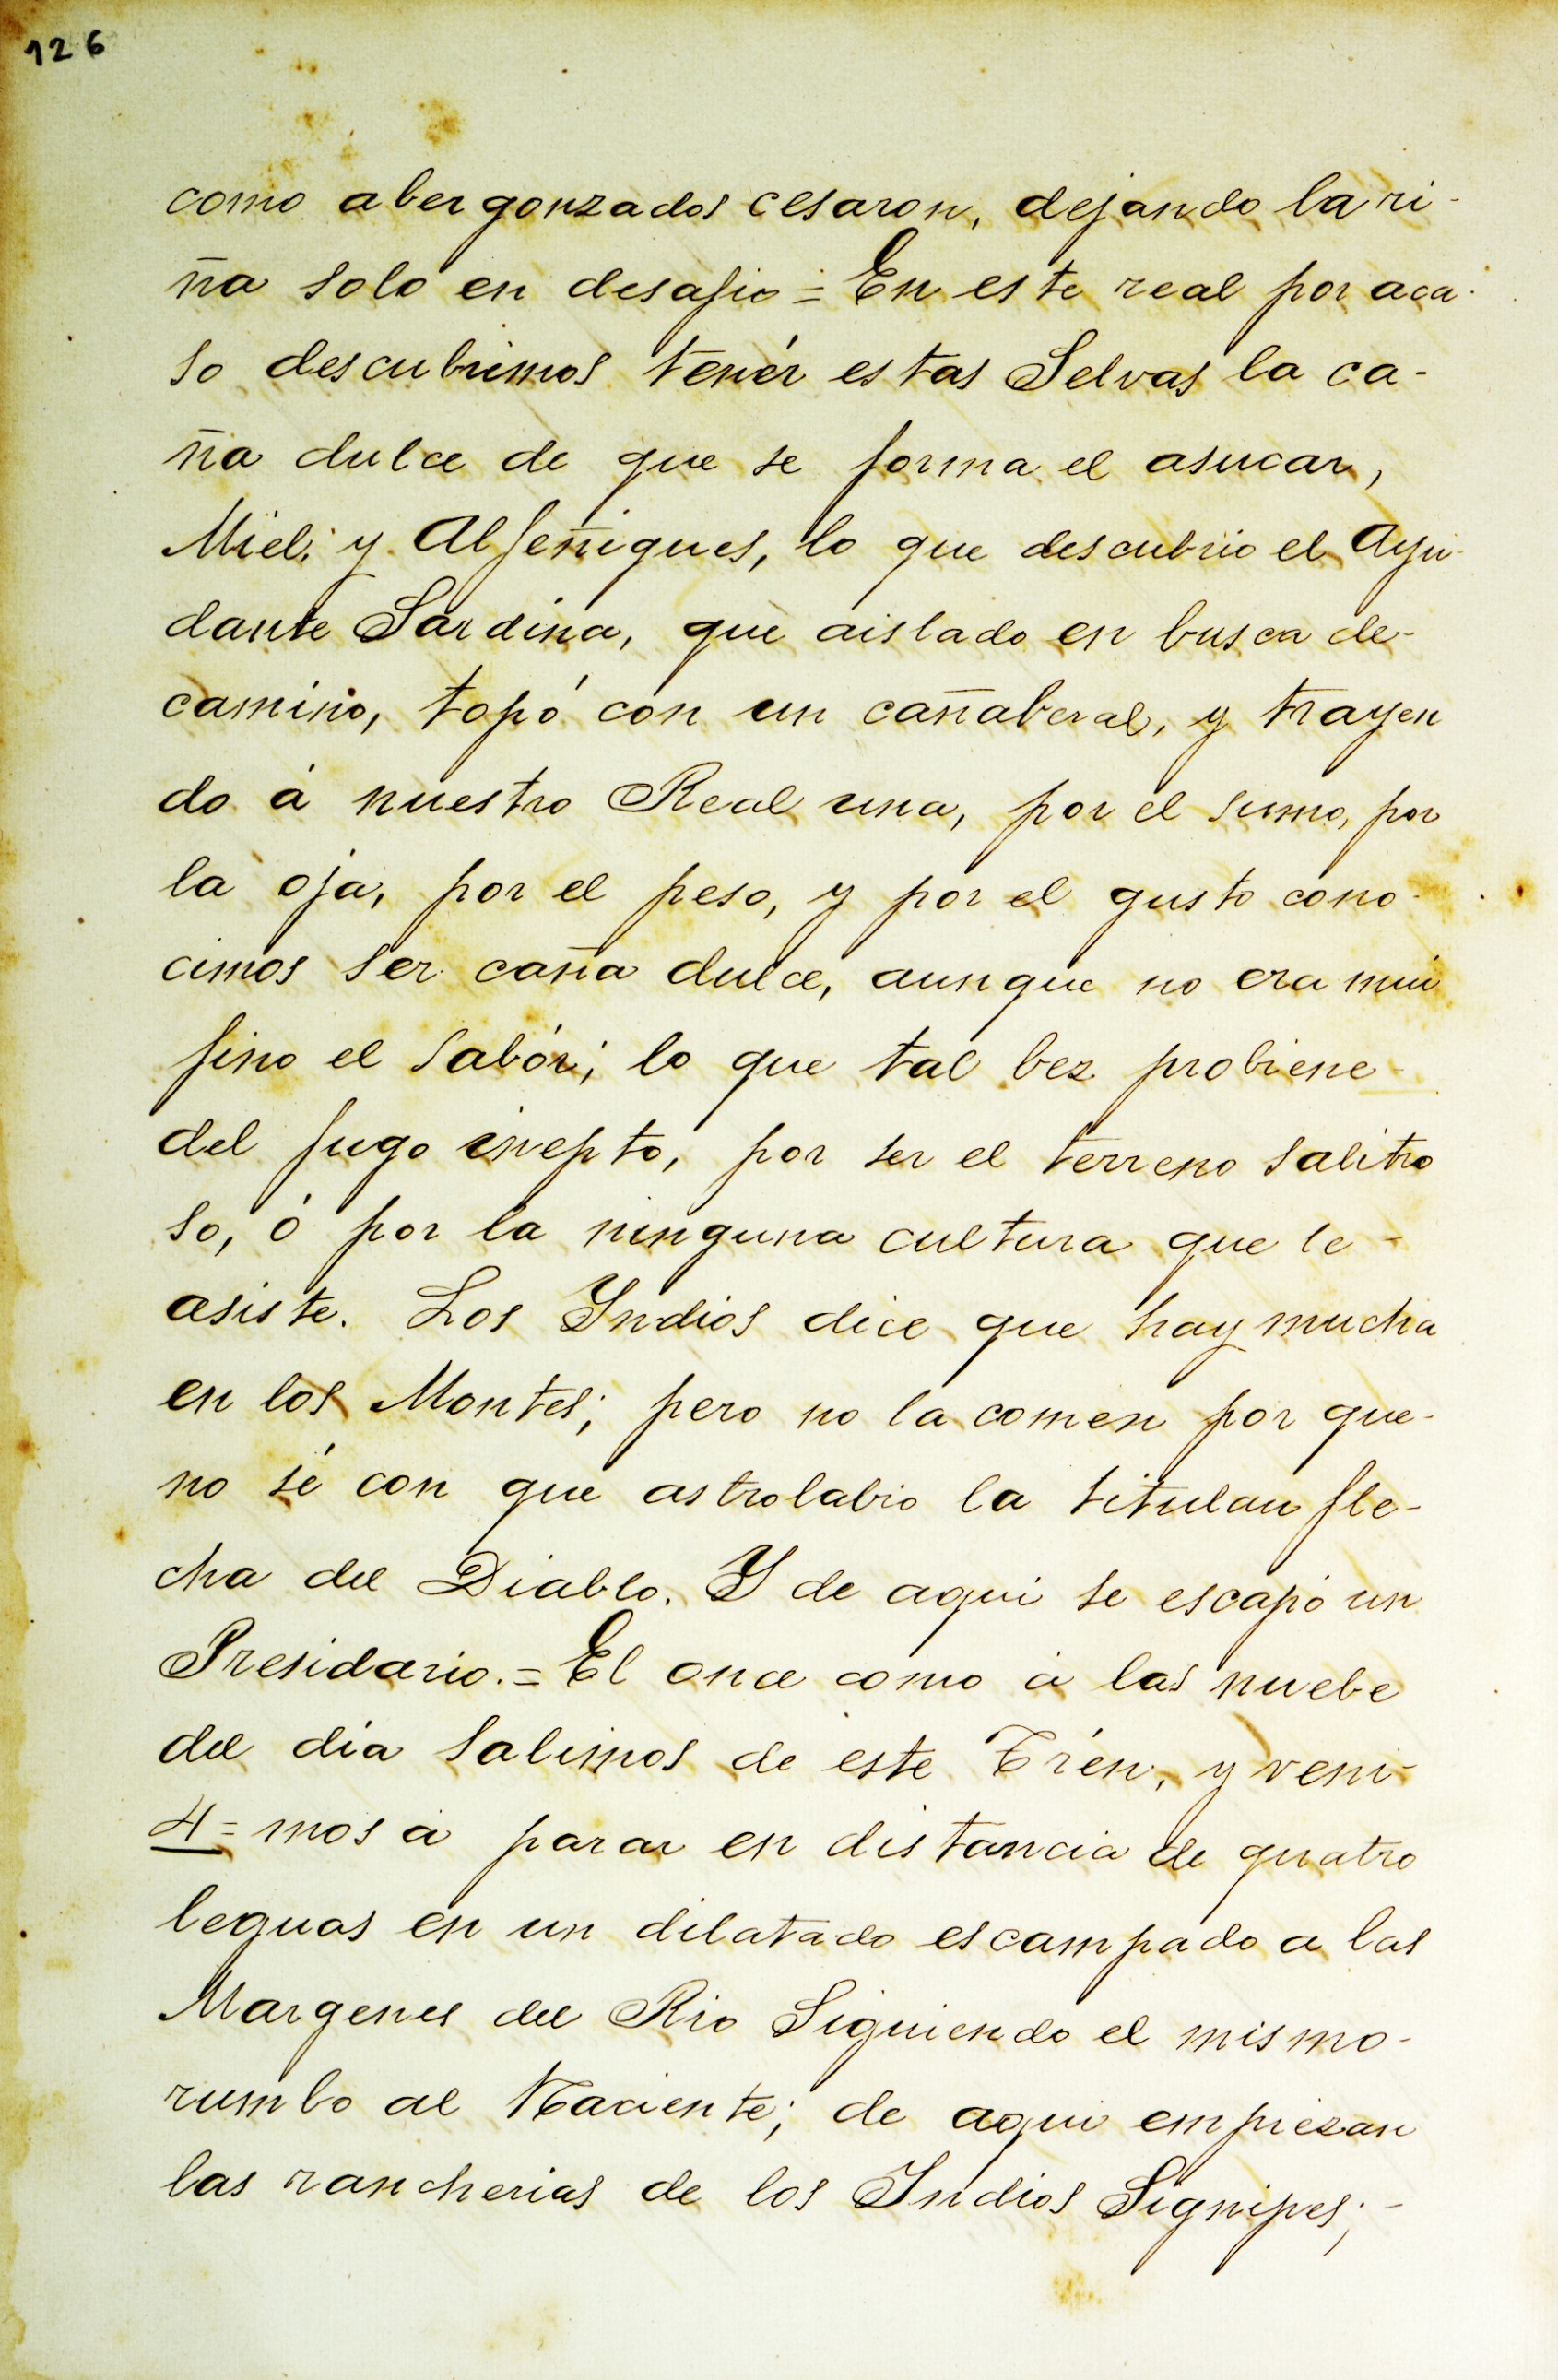 126
como abergonzados cesaron, dejando la ri-
ña solo en desafio = En este real por aca-
so descubrimos tenér estas Selvas la ca-
ña dulce de que se forma el asucar,
Miel, y Alfeñiques, lo que descubrio el Ayu-
dante Sardina, que aislado en busca de-
camino, topó con un cañaberal, y trayen
do á nuestro Real una, por el sumo, por
la oja, por el peso, y por el gusto cono-
cimos ser caña dulce, aunque no era mui
fino el sabór; lo que tal bez probiene-
del jugo inepto, por ser el terreno salitro
so, ó por la ninguna cultura que le-
asiste. Los Yndios dice que hay mucha
en los Montes; pero no la comen por que-
no sé con que astrolabio la titulan fle-
cha del Diablo. Y de aqui se escapó un
Presidario. = El once como á las nuebe
del dia salimos de este Trén, y veni-
4= mos á parar en distancia de quatro
leguas en un dilatado escampado a las
Margenes del Rio Siguiendo el mismo-
rumbo al Naciente; de aqui empiezan
las rancherias de los Yndios Signipes;-